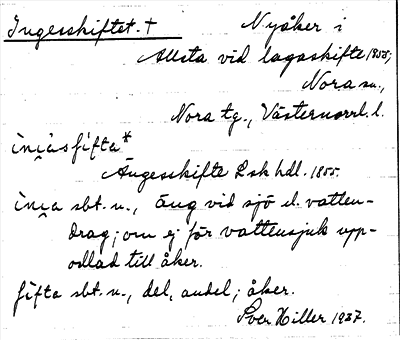 Ingesskiftet. † Nyåker i
Allsta vid lagaskifte 1855;
Nora sn.,
Nora tg., Västernorrl. l.
Ängesskifte Lsk hdl. 1855.
sbt. n., äng vid sjö el. vatten-
drag; om ej för vattensjuk upp-
odlad till åker.
sbt. n., del, andel; åker.
Sven Hiller 1937.